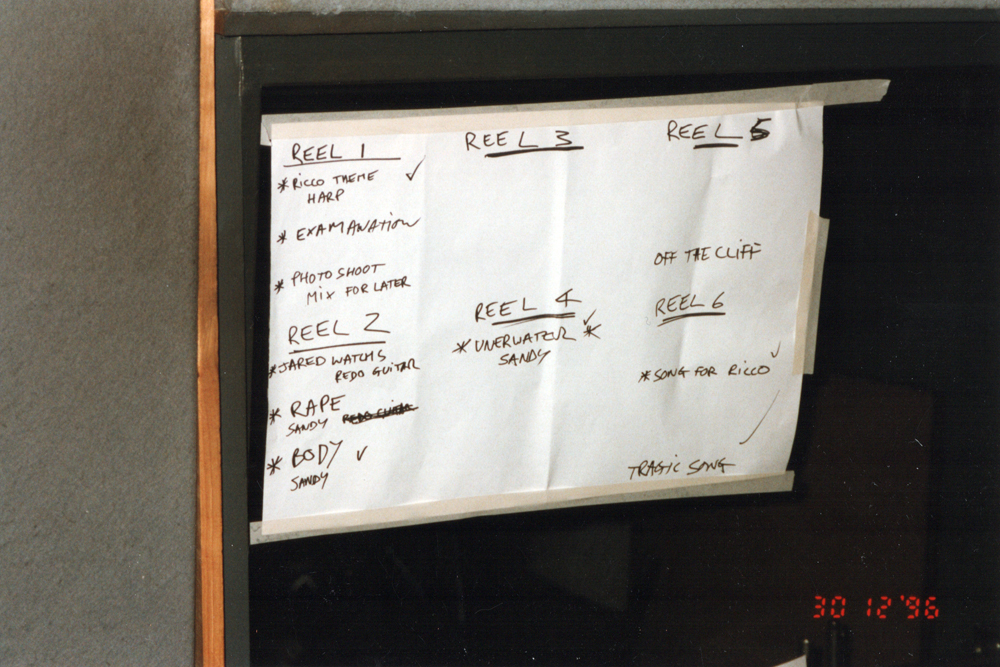 REEL 1
*RICCO THEME ✓
HARP
* EXAMANATION
* PHOTO SHOOT
MIX FOR LATER
REEL 2
*JARED WATCHS
REDO GUITAR
* RAPE
SANDY
* BODY ✓
SANDY
REEL 3
REEL 4
* UNERWATER *✓
SANDY
REEL 5
OFF THE CLIFF
REEL 6
*SONG FOR RICCO ✓
TRAGIC SONG
30 12 '96